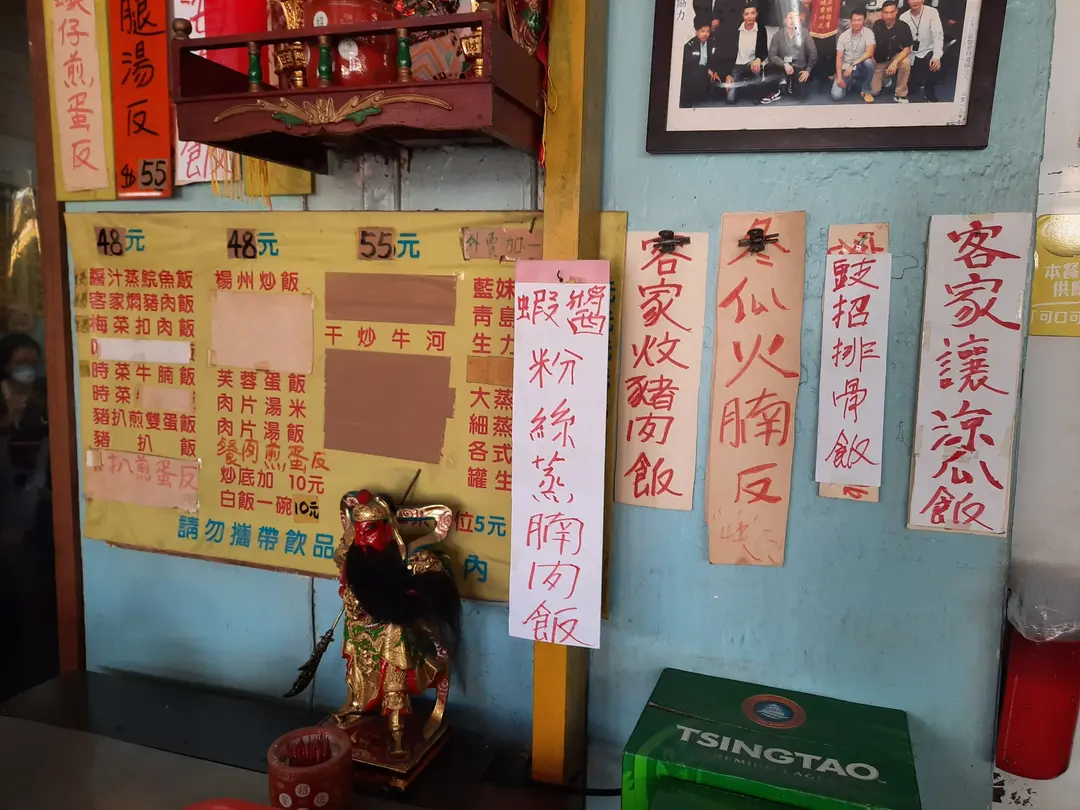 仔煎蛋反
腿湯反
$55
飯
協力
48元
醬汁蒸鯇魚飯
客家燜豬肉飯
梅菜扣肉飯
時菜牛腩飯
時菜
豬扒煎雙蛋飯
豬扒飯
扒煎蛋反
48元
楊州炒飯
芙蓉蛋飯
肉片湯米
肉片湯飯
餐肉煎蛋反
炒底加 10元
白飯一碗10元
55元
干炒牛河
外賣加一
藍妹
青島
生力
大蒸
細蒸
各式
罐生
請勿攜帶飲品
位5元
內
蝦醬粉絲蒸腩肉飯
客家炆豬肉飯
冬瓜火腩反
豉招排骨飯
客家讓涼瓜飯
本餐
供應
「可口可
TSINGTAO